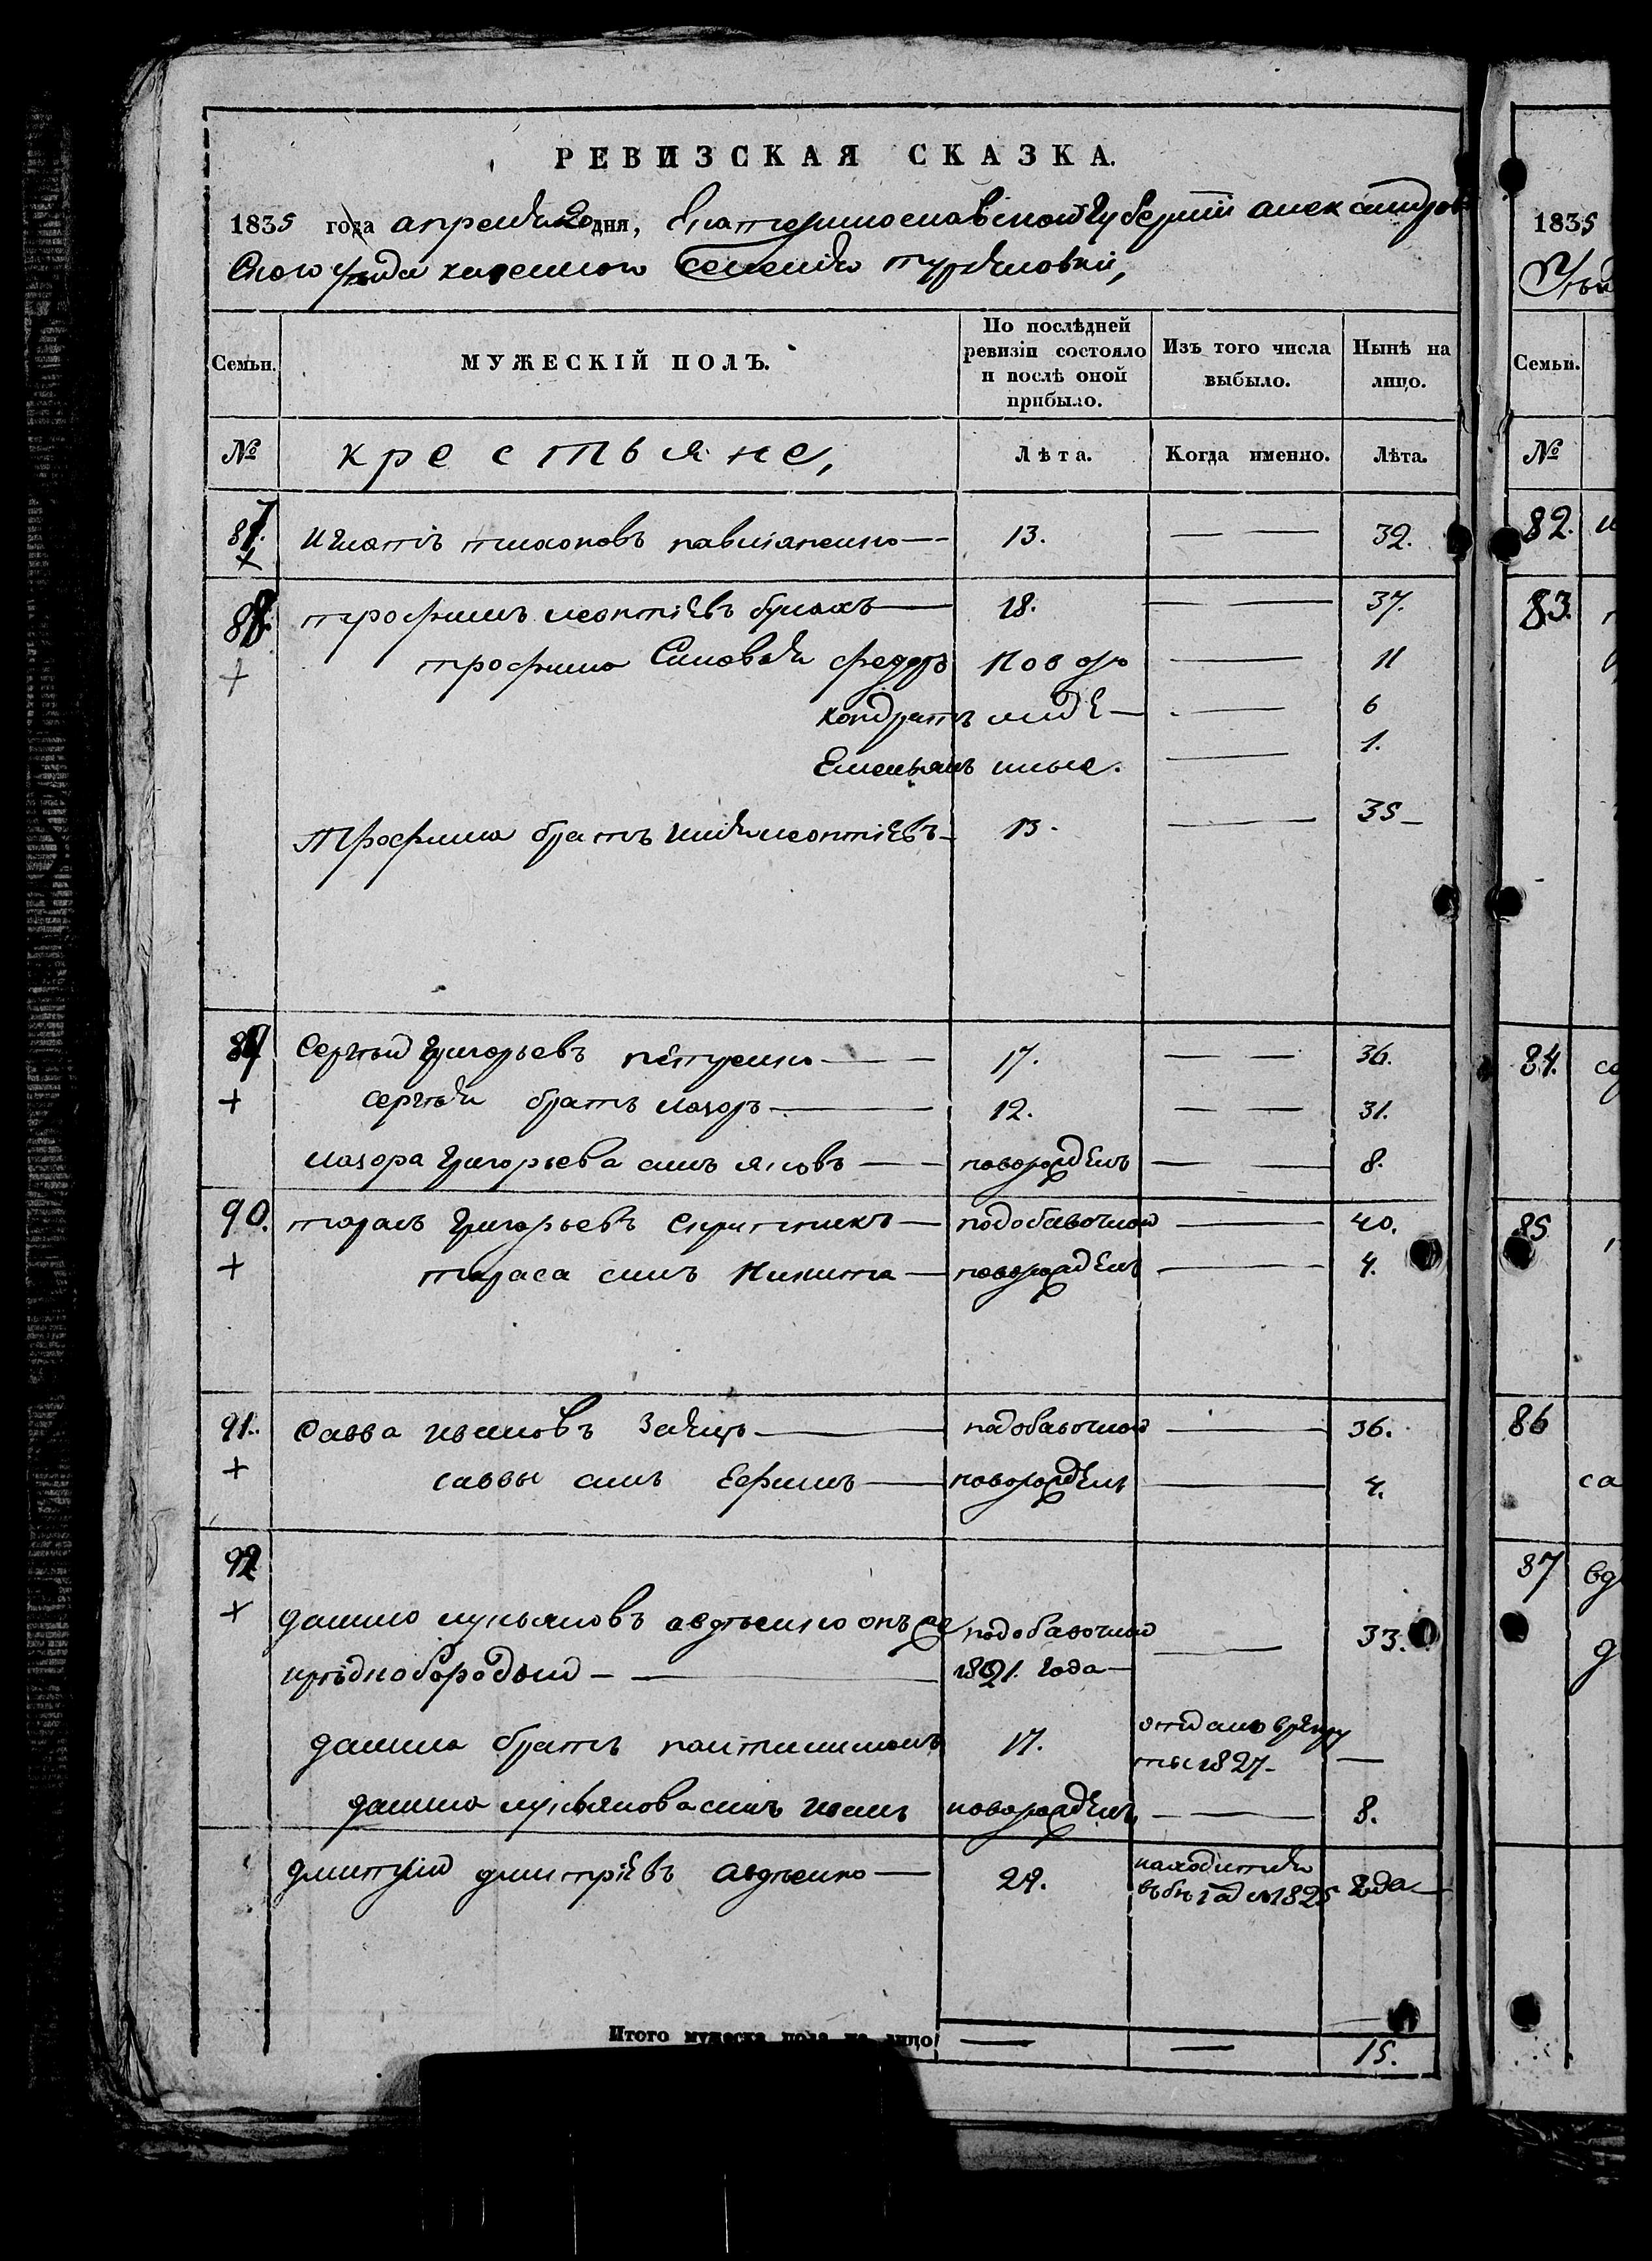 РЕВИЗСКАЯ СКАЗКА.
1835 года апреля 20 дня, Екатеринославской губернии александров
ского уѣзда казенного селения
Семьи.
МУЖЕСКІЙ ПОЛЪ.
По послѣдней ревизіи состояло и послѣ оной прибыло.
Изъ того числа выбыло.
Нынѣ на лицо.
№ крестьяне, Лѣта. Когда именно. Лѣта.
87. Игнатъ тихоновъ павленко — 13. — — 32.
+
88. трофимъ леонтіевъ — 18. — — 37.
+ трофима сыновья федоръ новоро — 11
кондратъ жде — — 6
Емельянъ нные. — 1.
трофима братъ илья леонтіевъ — 13. — 35 —
89 Сергѣй григорьевъ петренко — — 17. — — 36.
+ сергѣя братъ лазоръ — 12. — — 31.
лазора григорьева сынъ яковъ — — новорожденъ — — 8.
90. тарасъ григорьевъ скрипникъ — подобавочной — 40.
+ тараса сынъ Никита — новорожденъ — 4.
91. Савва ивановъ Заяцъ — подобавочной — 36.
+ саввы сынъ Ефимъ — новорожденъ — 4.
92
+ данило лукьяновъ авдѣенко онъ же подобавочной — 33.
рѣднобородый — — 1821. года —
данила братъ пантилимонъ 17. отданъ врекру
ты 1827 — —
данила лукьянова сынъ иванъ новорожденъ — — 8.
дмитрий дмитріевъ авдѣенко — 29. находится
въ бѣгах с 1825 года —
Итого мужеска пола на лицо — — 15.
1835
Уѣз
Семьи.
№
82.
83.
84.
85
86
са
87 вд
д